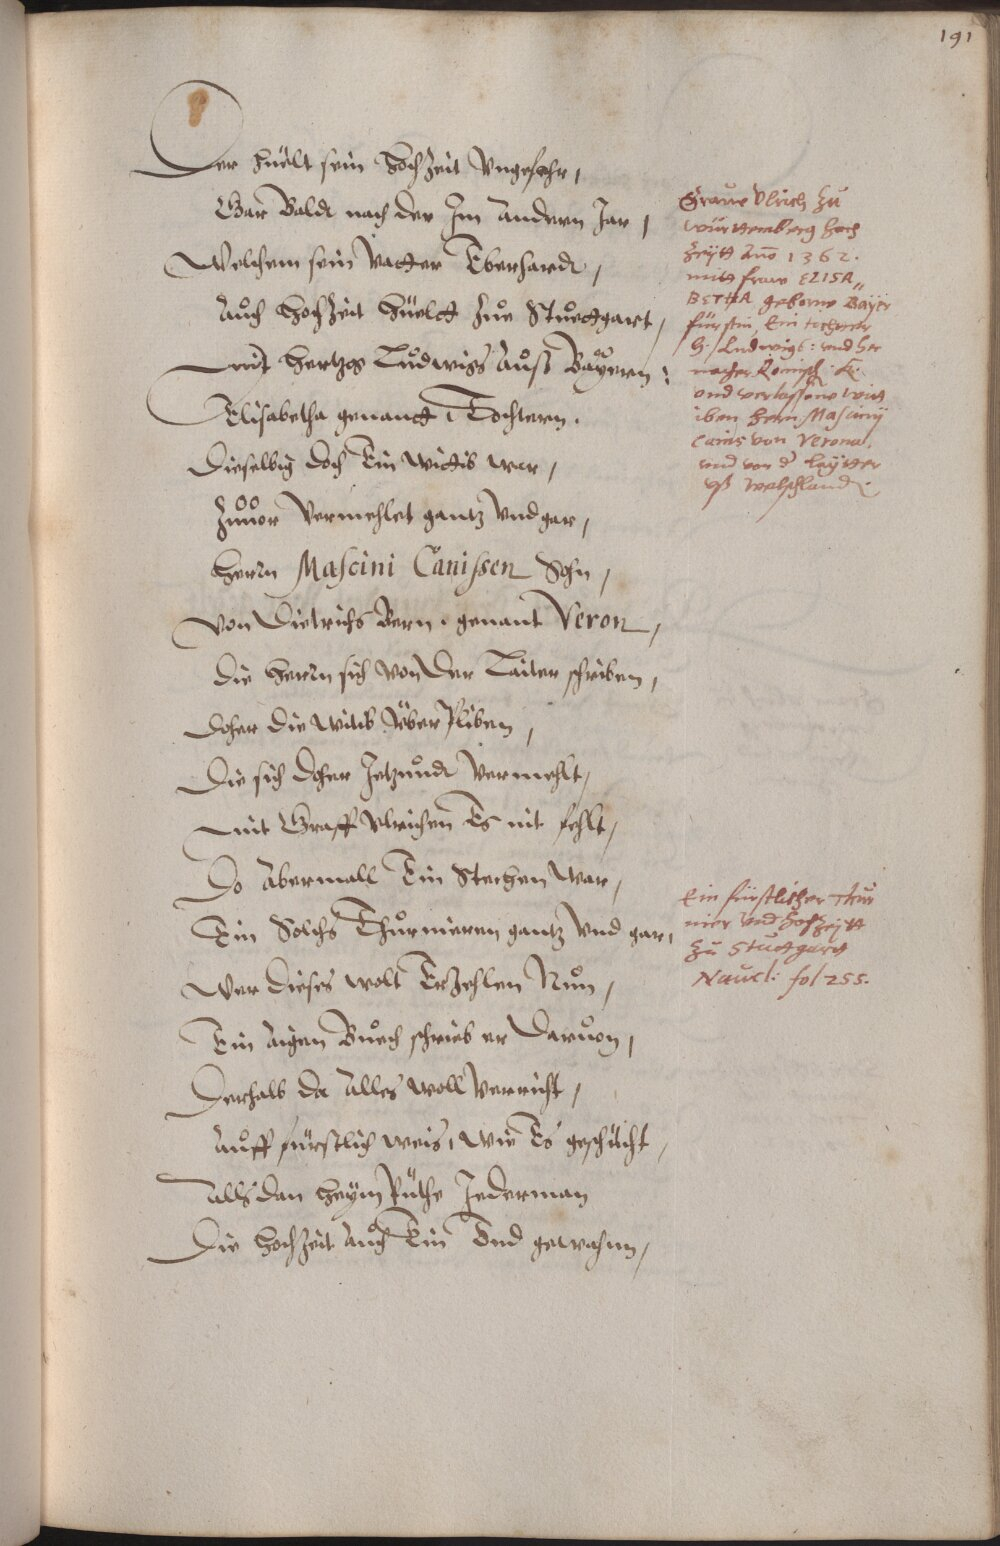 191
Der hüelt sein hochZeit Vngefehr,
Gar Baldt nach der Im Andern Jar,
Welchem sein Vatter Eberhardt,
Auch hochZeit hüeltt Zue Stuettgart,
mit hertzog Ludwigs Auß Bayern:
Elisabetha genantt Tochtern.
Dieselbig doch Ein wittib war,
Zuuor Vermehlet gantz Vnd gar,
Herrn Mascini Canissen Sohn,
Von Dietrichs Bern, genant Veron,
Die Herrn sich Von Der Laiter schriben,
Doher die witib Vber pliben,
Die sich doher Jetzundt Vermehlt,
mit Graff Vlrichen Es nit fehlt,
Do Abermall Ein Stechen war,
Ein Solchs Thurnieren gantz Vnd gar,
Wer dieses wolt Erzehlen Nun,
Ein Aigen Buech schrieb er Daruon,
Derhalb da Alles woll Verricht,
Auff fürstlich weis, wie Es geschücht,
Alls dan heym Rüthe Jederman
Die hochZeit Auch Ein End gewahnn,
Graue Vlrich zu
würtemberg hoch
zeytt Ano 1362.
mitt fraw ELISA„
BETHA geborne Bayer
fürstin, Ein tochter
H. Ludwigs: vnd her
nacher Römisch K.
vnd verlassene witt
iben hern Mascinij
canis von Verona,
vnd von d' Laytter
vß Welschland.
Ein fürstlicher Thur
nier vnd hochzeytt
zu Stuttgartt
Naucl: fol 255.